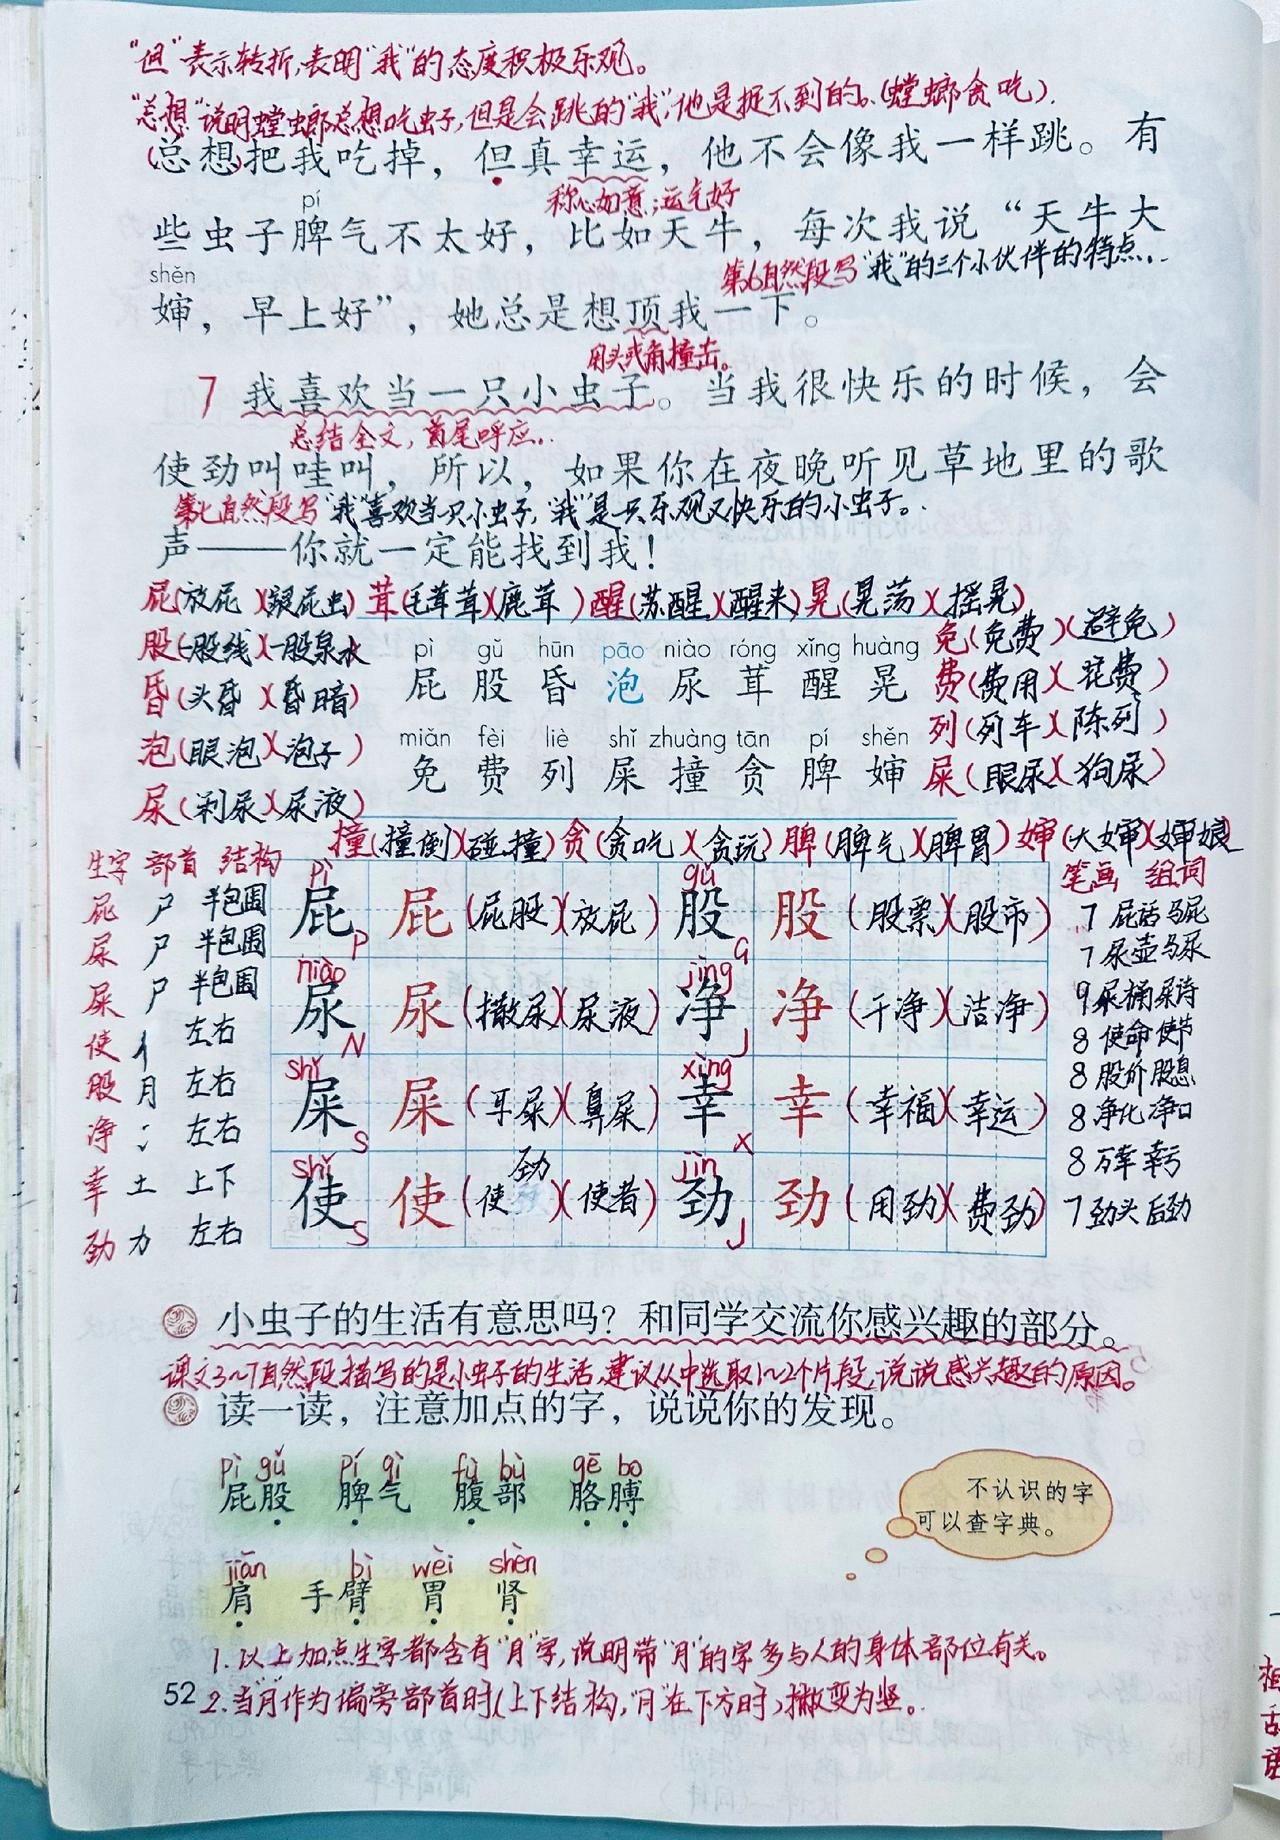 "但"表示转折,表明"我"的态度积极乐观。
"总想"说明螳螂总想吃虫子,但是会跳的"我",他是捉不到的。(螳螂贪吃).
(总想)把我吃掉，但真幸运，他不会像我一样跳。有
称心如意;运气好
pí
些虫子脾气不太好，比如天牛，每次我说“天牛大
第6自然段写"我"的三个小伙伴的特点..
shěn
婶，早上好”，她总是想顶我一下。
用头或角撞击。
7 我喜欢当一只小虫子。当我很快乐的时候，会
总结全文,首尾呼应..
使劲叫哇叫，所以，如果你在夜晚听见草地里的歌
第七自然段写"我"喜欢当只小虫子,"我"是一只乐观又快乐的小虫子。..
声——你就一定能找到我！
屁(放屁)(跟屁虫) 茸(毛茸茸)(鹿茸) 醒(苏醒)(醒来) 晃(晃荡)(摇晃)
股(一股线)(一股泉水 免(免费)(避免)
pì gǔ hūn pāo niào róng xǐng huàng
屁 股 昏 泡 尿 茸 醒 晃
昏(头昏)(昏暗) 费(费用)(花费)
泡(眼泡)(泡子) 列(列车)(陈列)
miǎn fèi liè shǐ zhuàng tān pí shěn
免 费 列 屎 撞 贪 脾 婶
尿(利尿)(尿液) 屎(眼屎)(狗屎)
撞(撞倒)(碰撞) 贪(贪吃)(贪玩) 脾(脾气)(脾胃) 婶(大婶)(婶娘
生字 部首 结构 笔画 组词
pì gǔ
屁 尸 半包围 屁 P 屁 (屁股)(放屁) 股 G 股 (股票)(股市) 7 屁话 马屁
尿 尸 半包围 7 尿壶 马尿
niào jìng
屎 尸 半包围 尿 N 尿 (撒尿)(尿液) 净 J 净 (干净)(洁净) 9 屎桶 屎诗
使 亻 左右 8 使命 使节
shǐ xìng
股 月 左右 屎 S 屎 (耳屎)(鼻屎) 幸 X 幸 (幸福)(幸运) 8 股价 股息
净 冫 左右 8 净化 净口
shǐ jìn
幸 土 上下 使 S 使 (使劲)(使者) 劲 J 劲 (用劲)(费劲) 8 万幸 幸亏
劲 力 左右 7 劲头 后劲
小虫子的生活有意思吗？和同学交流你感兴趣的部分。
课文3~7自然段描写的是小虫子的生活,建议从中选取1~2个片段,说说感兴趣的原因。
读一读，注意加点的字，说说你的发现。
pì gǔ pí qì fù bù gē bo
屁股 脾气 腹部 胳膊
不认识的字
可以查字典。
jiān bì wèi shèn
肩 手臂 胃 肾
1.以上加点生字都含有"月"字,说明带"月"的字多与人的身体部位有关。
52 2.当"月"作为偏旁部首时(上下结构,"月"在下方时)撇变为竖。.